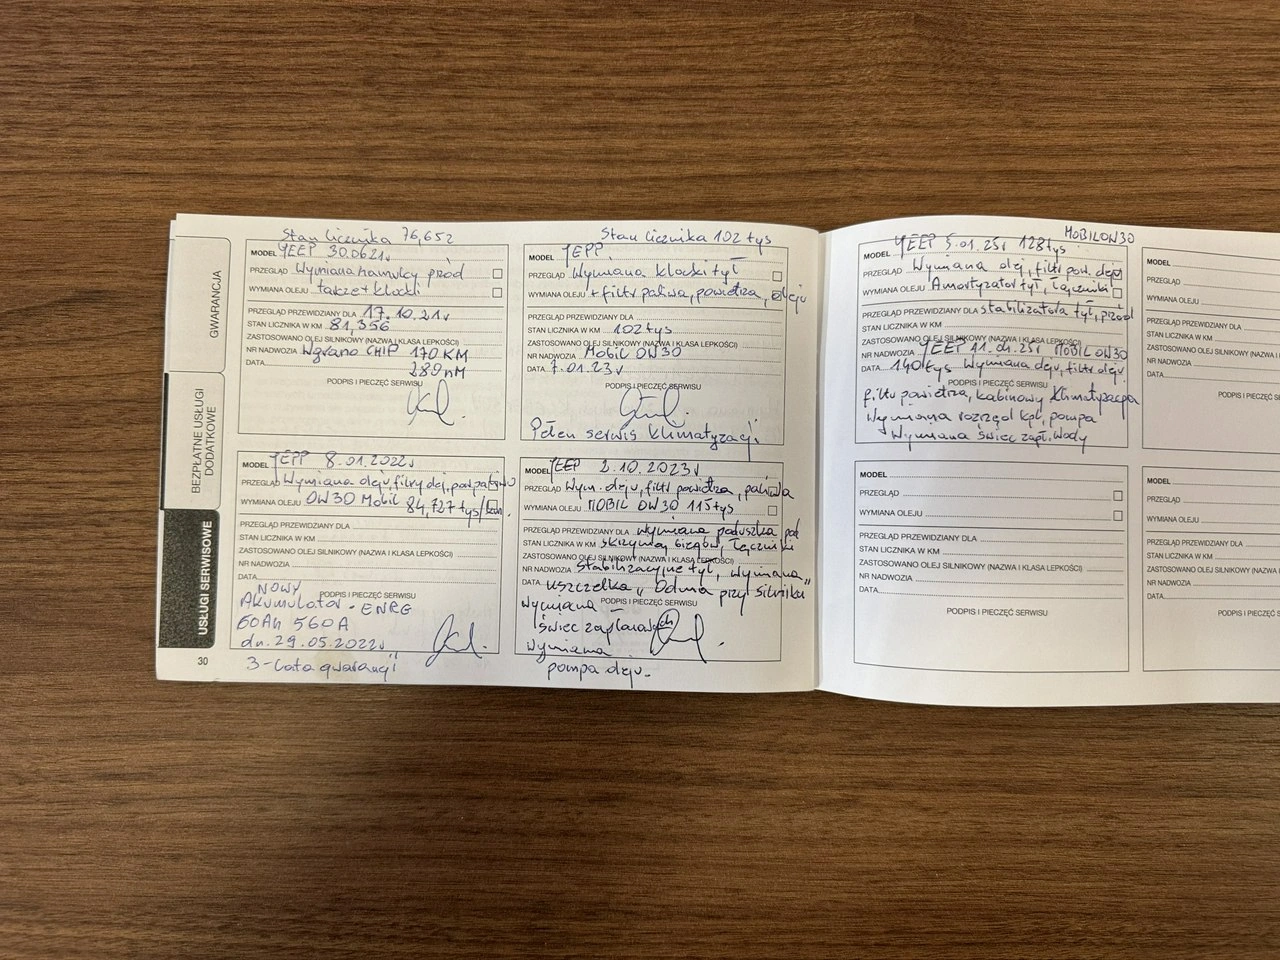 GWARANCJA
BEZPŁATNE USŁUGI
DODATKOWE
USŁUGI SERWISOWE
30
Stan licznika 76,652
MODEL YEEP 30.06.21r
PRZEGLĄD Wymiana hamulcy przód
WYMIANA OLEJU tarcze + klocki
PRZEGLĄD PRZEWIDZIANY DLA 17.10.21r
STAN LICZNIKA W KM 81,356
ZASTOSOWANO OLEJ SILNIKOWY (NAZWA I KLASA LEPKOŚCI)
NR NADWOZIA Wgrano CHIP 170 KM
DATA 280 nM
PODPIS I PIECZĘĆ SERWISU
MODEL YEPP 8.01.2022r
PRZEGLĄD Wymiana oleju, filtry olej, pow,
WYMIANA OLEJU OW30 Mobil 84,727 tys/
PRZEGLĄD PRZEWIDZIANY DLA
STAN LICZNIKA W KM
ZASTOSOWANO OLEJ SILNIKOWY (NAZWA I KLASA LEPKOŚCI)
NR NADWOZIA
DATA
NOWY PODPIS I PIECZĘĆ SERWISU
Akumulator - ENRG
60Ah 560A
dn. 29.05.2022r
3-Lata gwarancji
Stan licznika 102 tys
MODEL YEPP
PRZEGLĄD Wymiana klocki tył
WYMIANA OLEJU + filtr paliwa, powietrza, oleju
PRZEGLĄD PRZEWIDZIANY DLA
STAN LICZNIKA W KM 102 tys
ZASTOSOWANO OLEJ SILNIKOWY (NAZWA I KLASA LEPKOŚCI)
NR NADWOZIA Mobil OW30
DATA 7.01.23r
PODPIS I PIECZĘĆ SERWISU
Pełen serwis klimatyzacji
MODEL YEEP 2.10.2023r
PRZEGLĄD Wym. oleju, filtr powietrza, paliwa
WYMIANA OLEJU MOBIL OW30 115 tys
PRZEGLĄD PRZEWIDZIANY DLA wymiana poduszka pod
STAN LICZNIKA W KM skrzynią biegów, łączniki
ZASTOSOWANO OLEJ SILNIKOWY (NAZWA I KLASA LEPKOŚCI)
NR NADWOZIA Stabilizacyjne tył, wymiana
DATA uszczelka „Odma przy silniku
wymiana PODPIS I PIECZĘĆ SERWISU
świec zapłonowych
wymiana
pompa oleju.
MOBIL OW30
MODEL YEEP 5.01.25r 128 tys
PRZEGLĄD Wymiana olej, filtr pow. oleju
WYMIANA OLEJU Amortyzator tył, łączniki
PRZEGLĄD PRZEWIDZIANY DLA stabilizatora tył, przód
STAN LICZNIKA W KM
ZASTOSOWANO OLEJ SILNIKOWY (NAZWA I KLASA LEPKOŚCI)
NR NADWOZIA YEEP MOBIL OW30
DATA 140 tys Wymiana oleju, filtr oleju
PODPIS I PIECZĘĆ SERWISU
filtr powietrza, kabinowy Klimatyzacja
Wymiana rozrząd kpl, pompa
Wymiana świec zapł. Wody
MODEL
PRZEGLĄD
WYMIANA OLEJU
PRZEGLĄD PRZEWIDZIANY DLA
STAN LICZNIKA W KM
ZASTOSOWANO OLEJ SILNIKOWY (NAZWA I KLASA LEPKOŚCI)
NR NADWOZIA
DATA
PODPIS I PIECZĘĆ SERWISU
MODEL
PRZEGLĄD
WYMIANA OLEJU
PRZEGLĄD PRZEWIDZIANY DLA
STAN LICZNIKA W KM
ZASTOSOWANO OLEJ SILNIKOWY (NAZWA
NR NADWOZIA
DATA
PODPIS I PIECZĘĆ
MODEL
PRZEGLĄD
WYMIANA OLEJU
PRZEGLĄD PRZEWIDZIANY DLA
STAN LICZNIKA W KM
ZASTOSOWANO OLEJ SILNIKOWY (NAZWA I
NR NADWOZIA
DATA
PODPIS I PIECZĘĆ